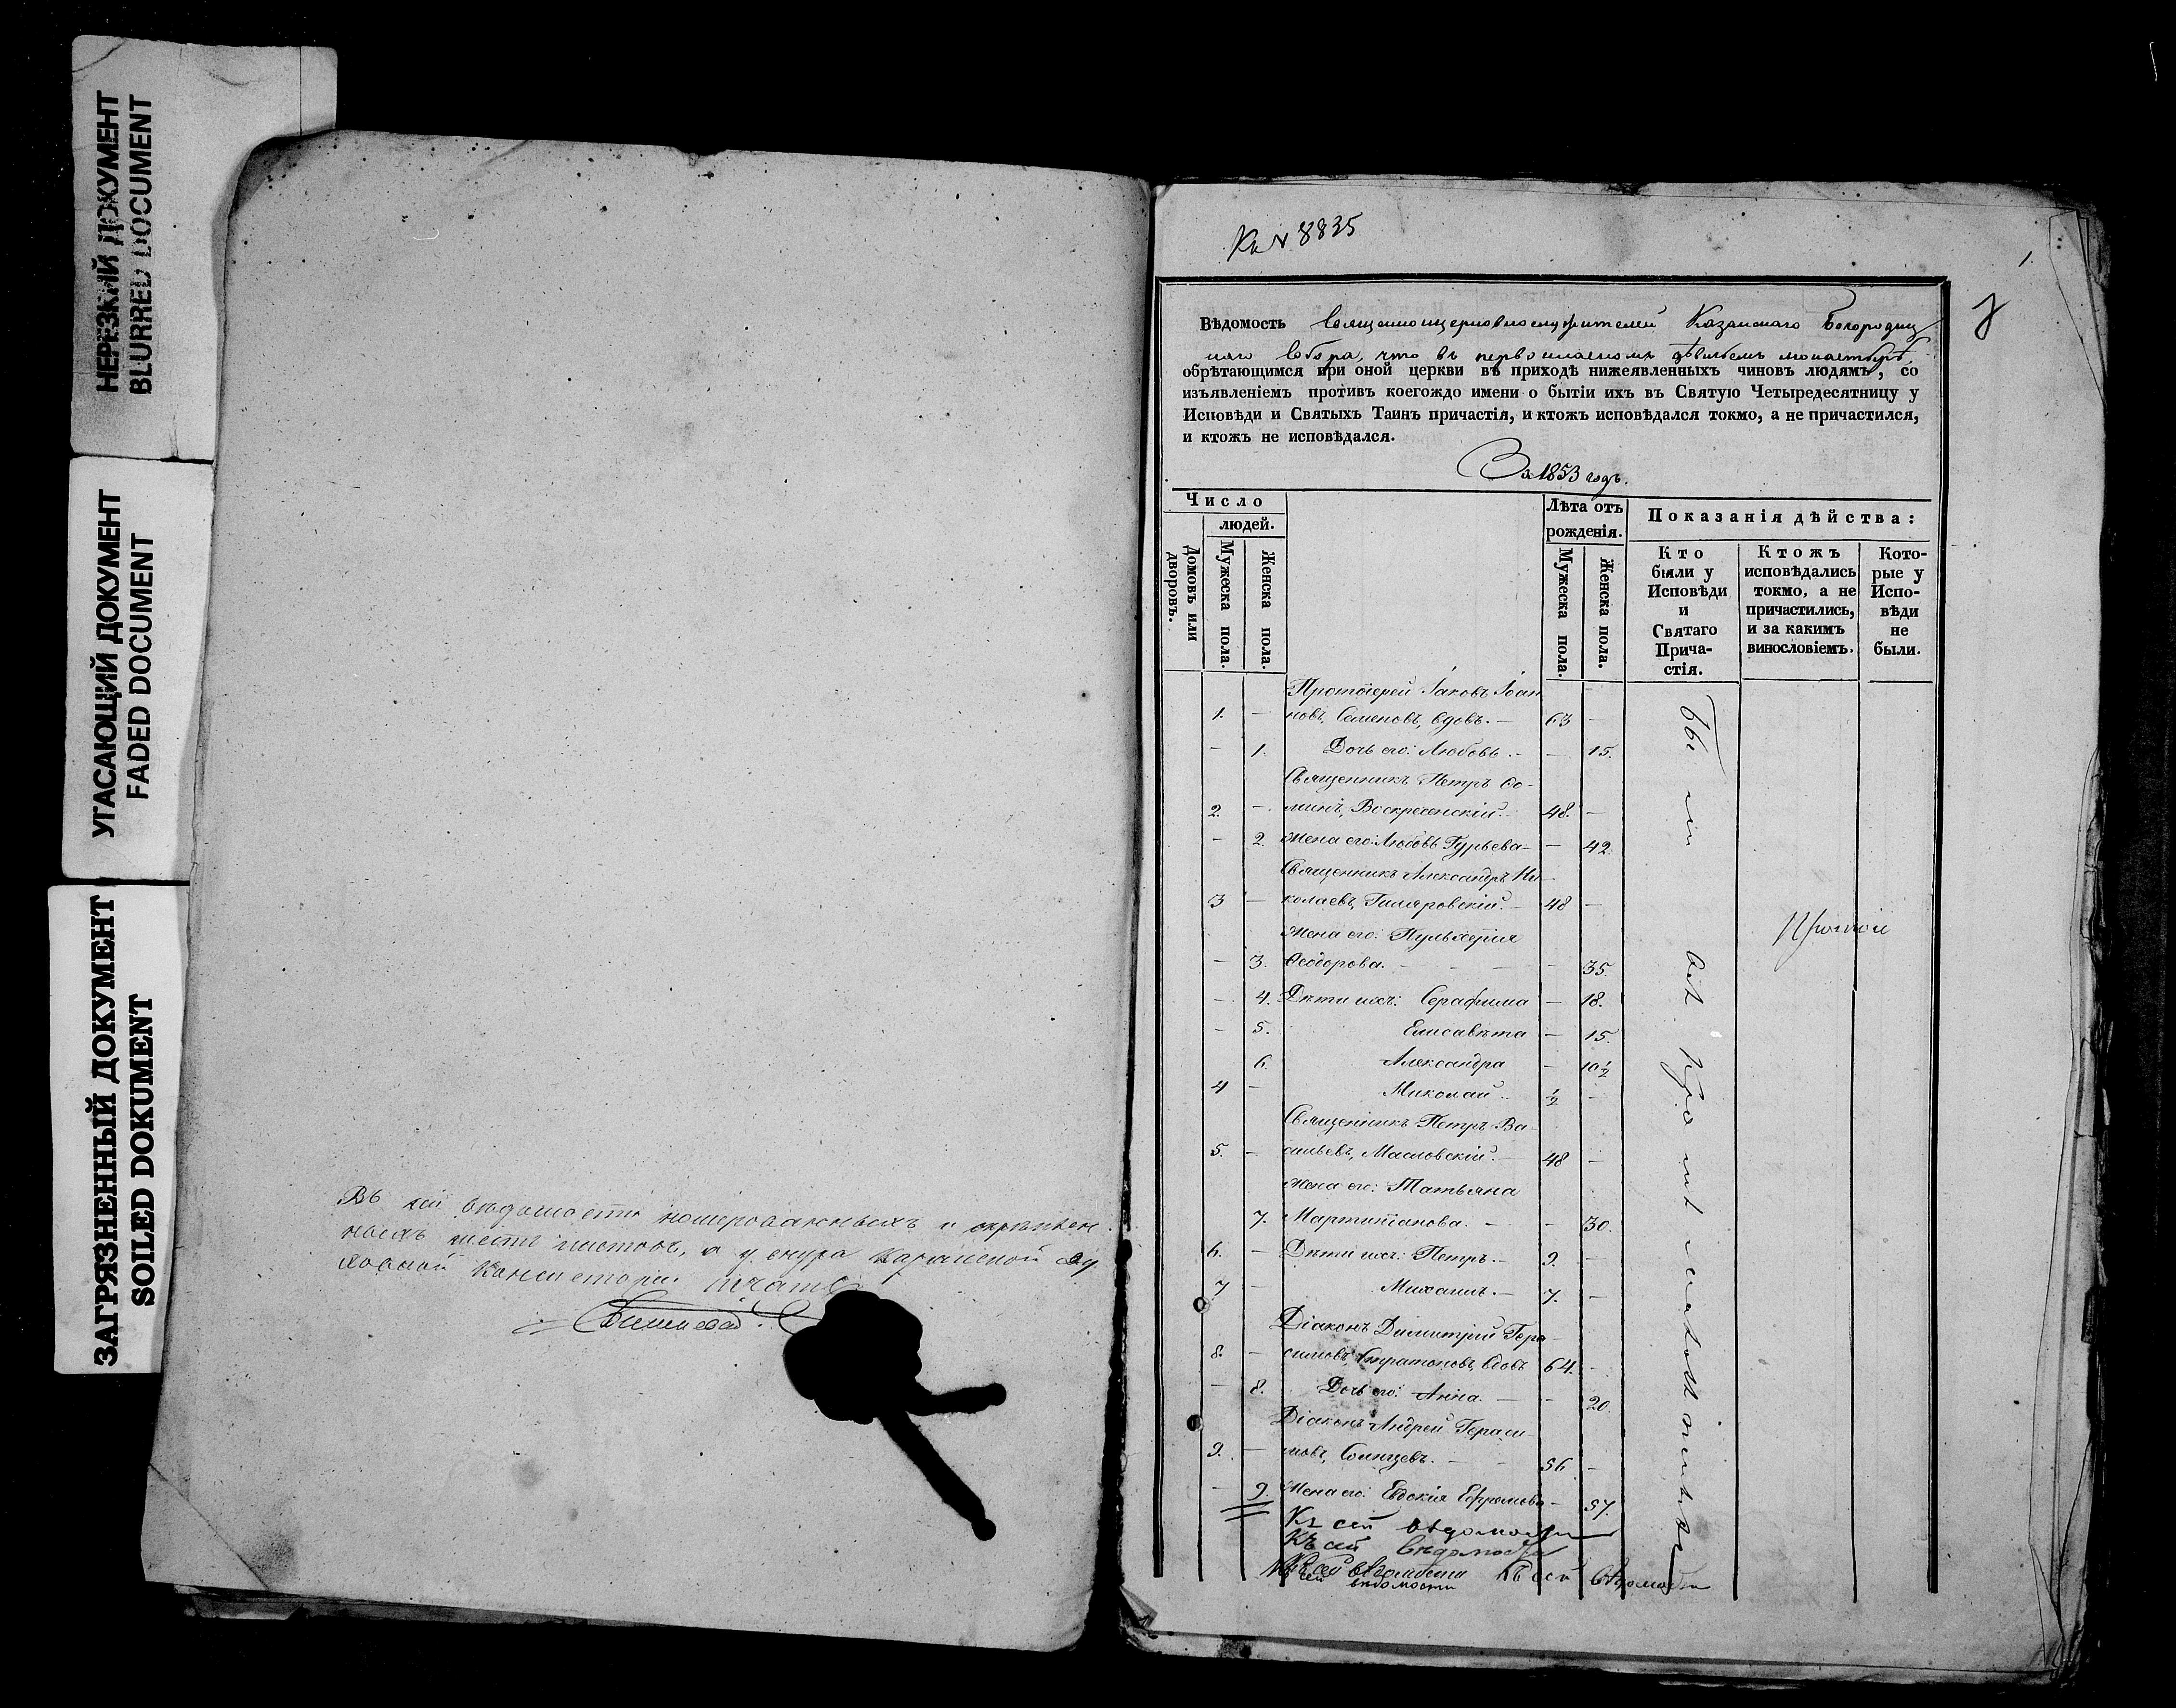 НЕРЕЗКИЙ ДОКУМЕНТ
BLURRED DOCUMENT
УГАСАЮЩИЙ ДОКУМЕНТ
FADED DOCUMENT
ЗАГРЯЗНЕННЫЙ ДОКУМЕНТ
SOILED DOKUMENT
Въ сей вѣдомости номерованныхъ и скрѣплен
ныхъ шесть листовъ, а у снура Казанской Ду
ховной Консисторіи печать
Къ № 8835
1.
Вѣдомость Священноцерковнослужителей Казанскаго Богородиц
каго Собора, что въ первоклассномъ дѣвичьемъ монастырѣ,
обрѣтающимся при оной церкви въ приходѣ нижеявленныхъ чиновъ людямъ, со
изъявленіемъ противъ коегождо имени о бытіи ихъ въ Святую Четыредесятницу у
Исповѣди и Святыхъ Таинъ причастія, и ктожъ исповѣдался токмо, а не причастился,
и ктожъ не исповѣдался.
За 1853 годъ.
Число
людей.
Домовъ или дворовъ.
Мужеска пола.
Женска пола.
Лѣта отъ рожденія.
Мужеска пола.
Женска пола.
Показанія дѣйства:
Кто были у Исповѣди и Святаго Причастія.
Ктожъ исповѣдались токмо, а не причастились, и за какимъ винословіемъ.
Кото-рые у Испо-вѣди не были.
Протоіерей Іаковъ Іоан
1. — новъ, Семеновъ, вдовъ. — 63 —
— 1. Дочь его: Любовь. — — 15.
Священникъ Петръ Ѳо-
2. — минъ, Воскресенскій. 48. —
— 2. Жена его: Любовь Гурьева — — 42.
Священникъ Александръ Ни
3 — колаевъ, Гиляровскій. — 48 —
Жена его: Пульхерія
— 3. Ѳеодорова. — — 35.
— 4. Дѣти ихъ: Серафима — 18.
— 5. Елисавета — 15.
6. Александра — 10½
4 — Николай. ½ —
Священникъ Петръ Ва
5. — сильевъ, Масловскій. — 48 —
Жена его: Татьяна
7. Мартиніанова. — — 30.
6. — Дѣти ихъ: Петръ. — 9. —
7 — Михаилъ. — 7. —
Діаконъ Димитрій Гера-
8. — симовъ, Стратоновъ, вдовъ 64. —
— 8. Дочь его: Анна. — — 20.
Діаконъ Андрей Гераси-
9. — мовъ, Солнцевъ. — 56 —
— 9. Жена его: Евдокія Ефремова — 57.
Къ сей вѣдомости
Къ сей вѣдомости
Къ сей вѣдомости Къ сей вѣдомости
Къ сей вѣдомости